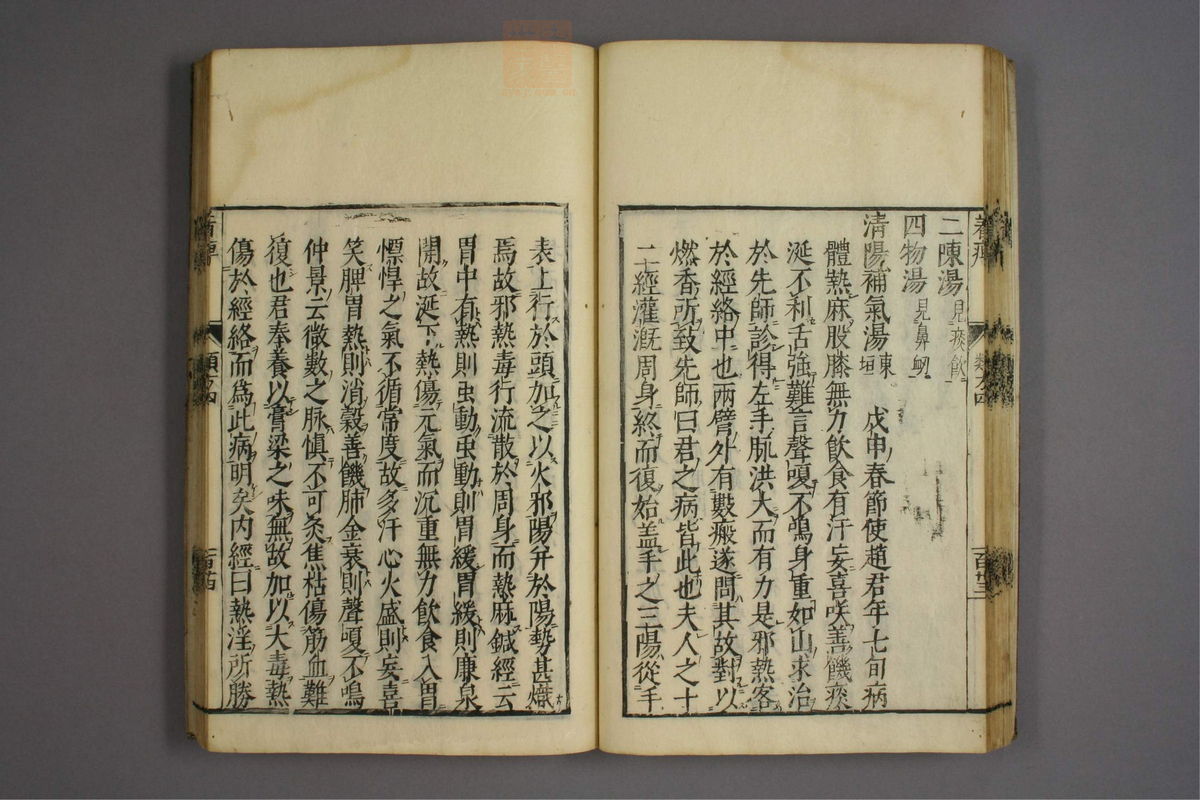 二陳湯 見痰飲
四物湯 見鼻衂
清陽補氣湯 東垣 戊申春節使趙君年七旬病
體熱麻股膝無力飲食有汗妄喜咲善饑痰
涎不利舌強難言聲嗄不鳴身重如山求治
於先師診得左手脉洪大而有力是邪熱客
於經絡中也兩臂外有數瘢遂問其故對以
燃香所致先師曰君之病皆此也夫人之十
二經灌漑周身終而復始盖手之三陽從手
表上行於頭加之以火邪陽并於陽勢甚熾
焉故邪熱毒行流散於周身而熱麻鍼經云
胃中有熱則虫動虫動則胃緩胃緩則廉泉
開故涎下熱傷元氣而沉重無力飲食入胃
慓悍之氣不循常度故多汗心火盛則妄喜
笑脾胃熱則消穀善饑肺金衰則聲嗄不鳴
仲景云微數之脉慎不可灸焦枯傷筋血難
復也君奉養以膏梁之味無故加以大毒熱
傷於經絡而爲此病明矣内經曰熱淫所勝